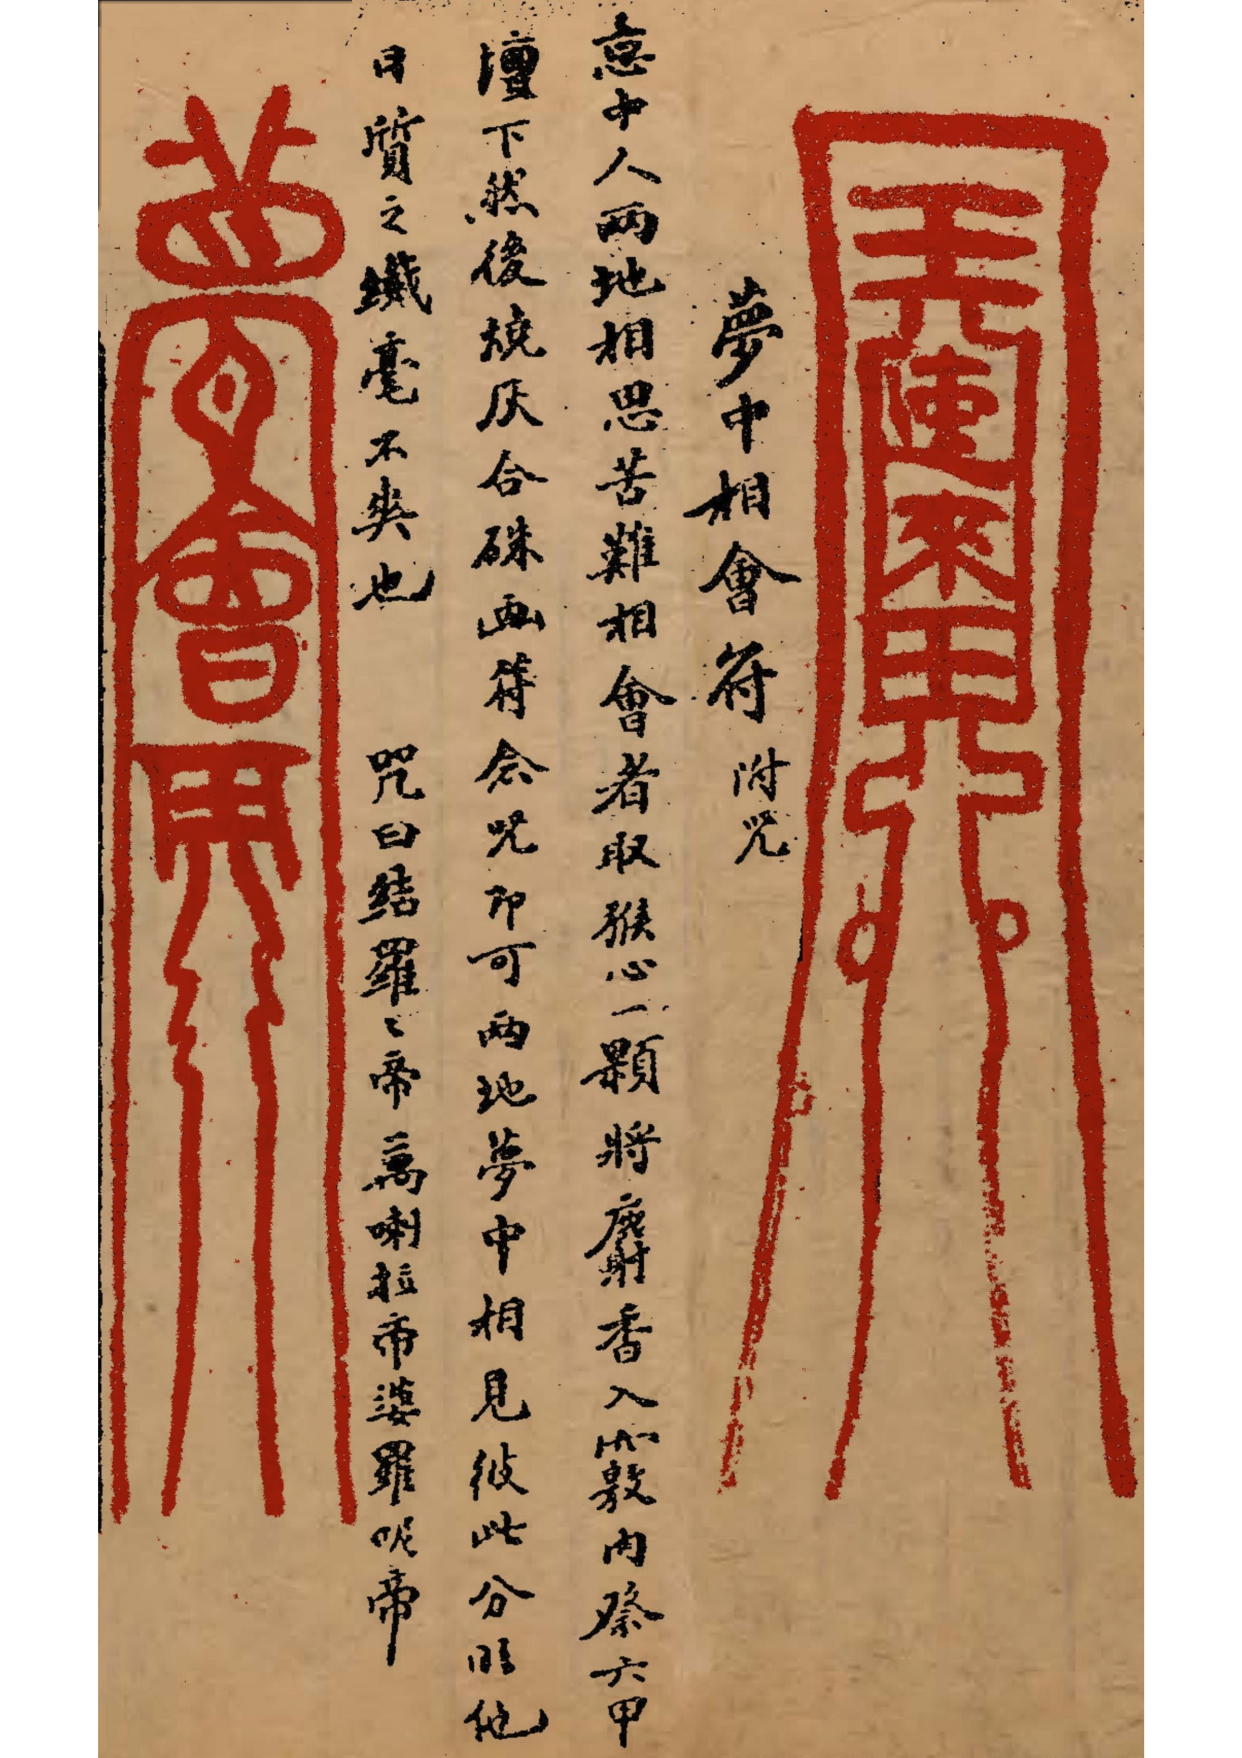 夢中相會符 附咒
意中人兩地相思苦難相會者取猴心一顆將麝香入心竅內祭六甲
壇下然後燒灰合硃画符念咒即可兩地夢中相見彼此分明他
日質之纖毫不爽也 咒曰結羅〻帝萬喇拉帝婆羅呢帝
夢會